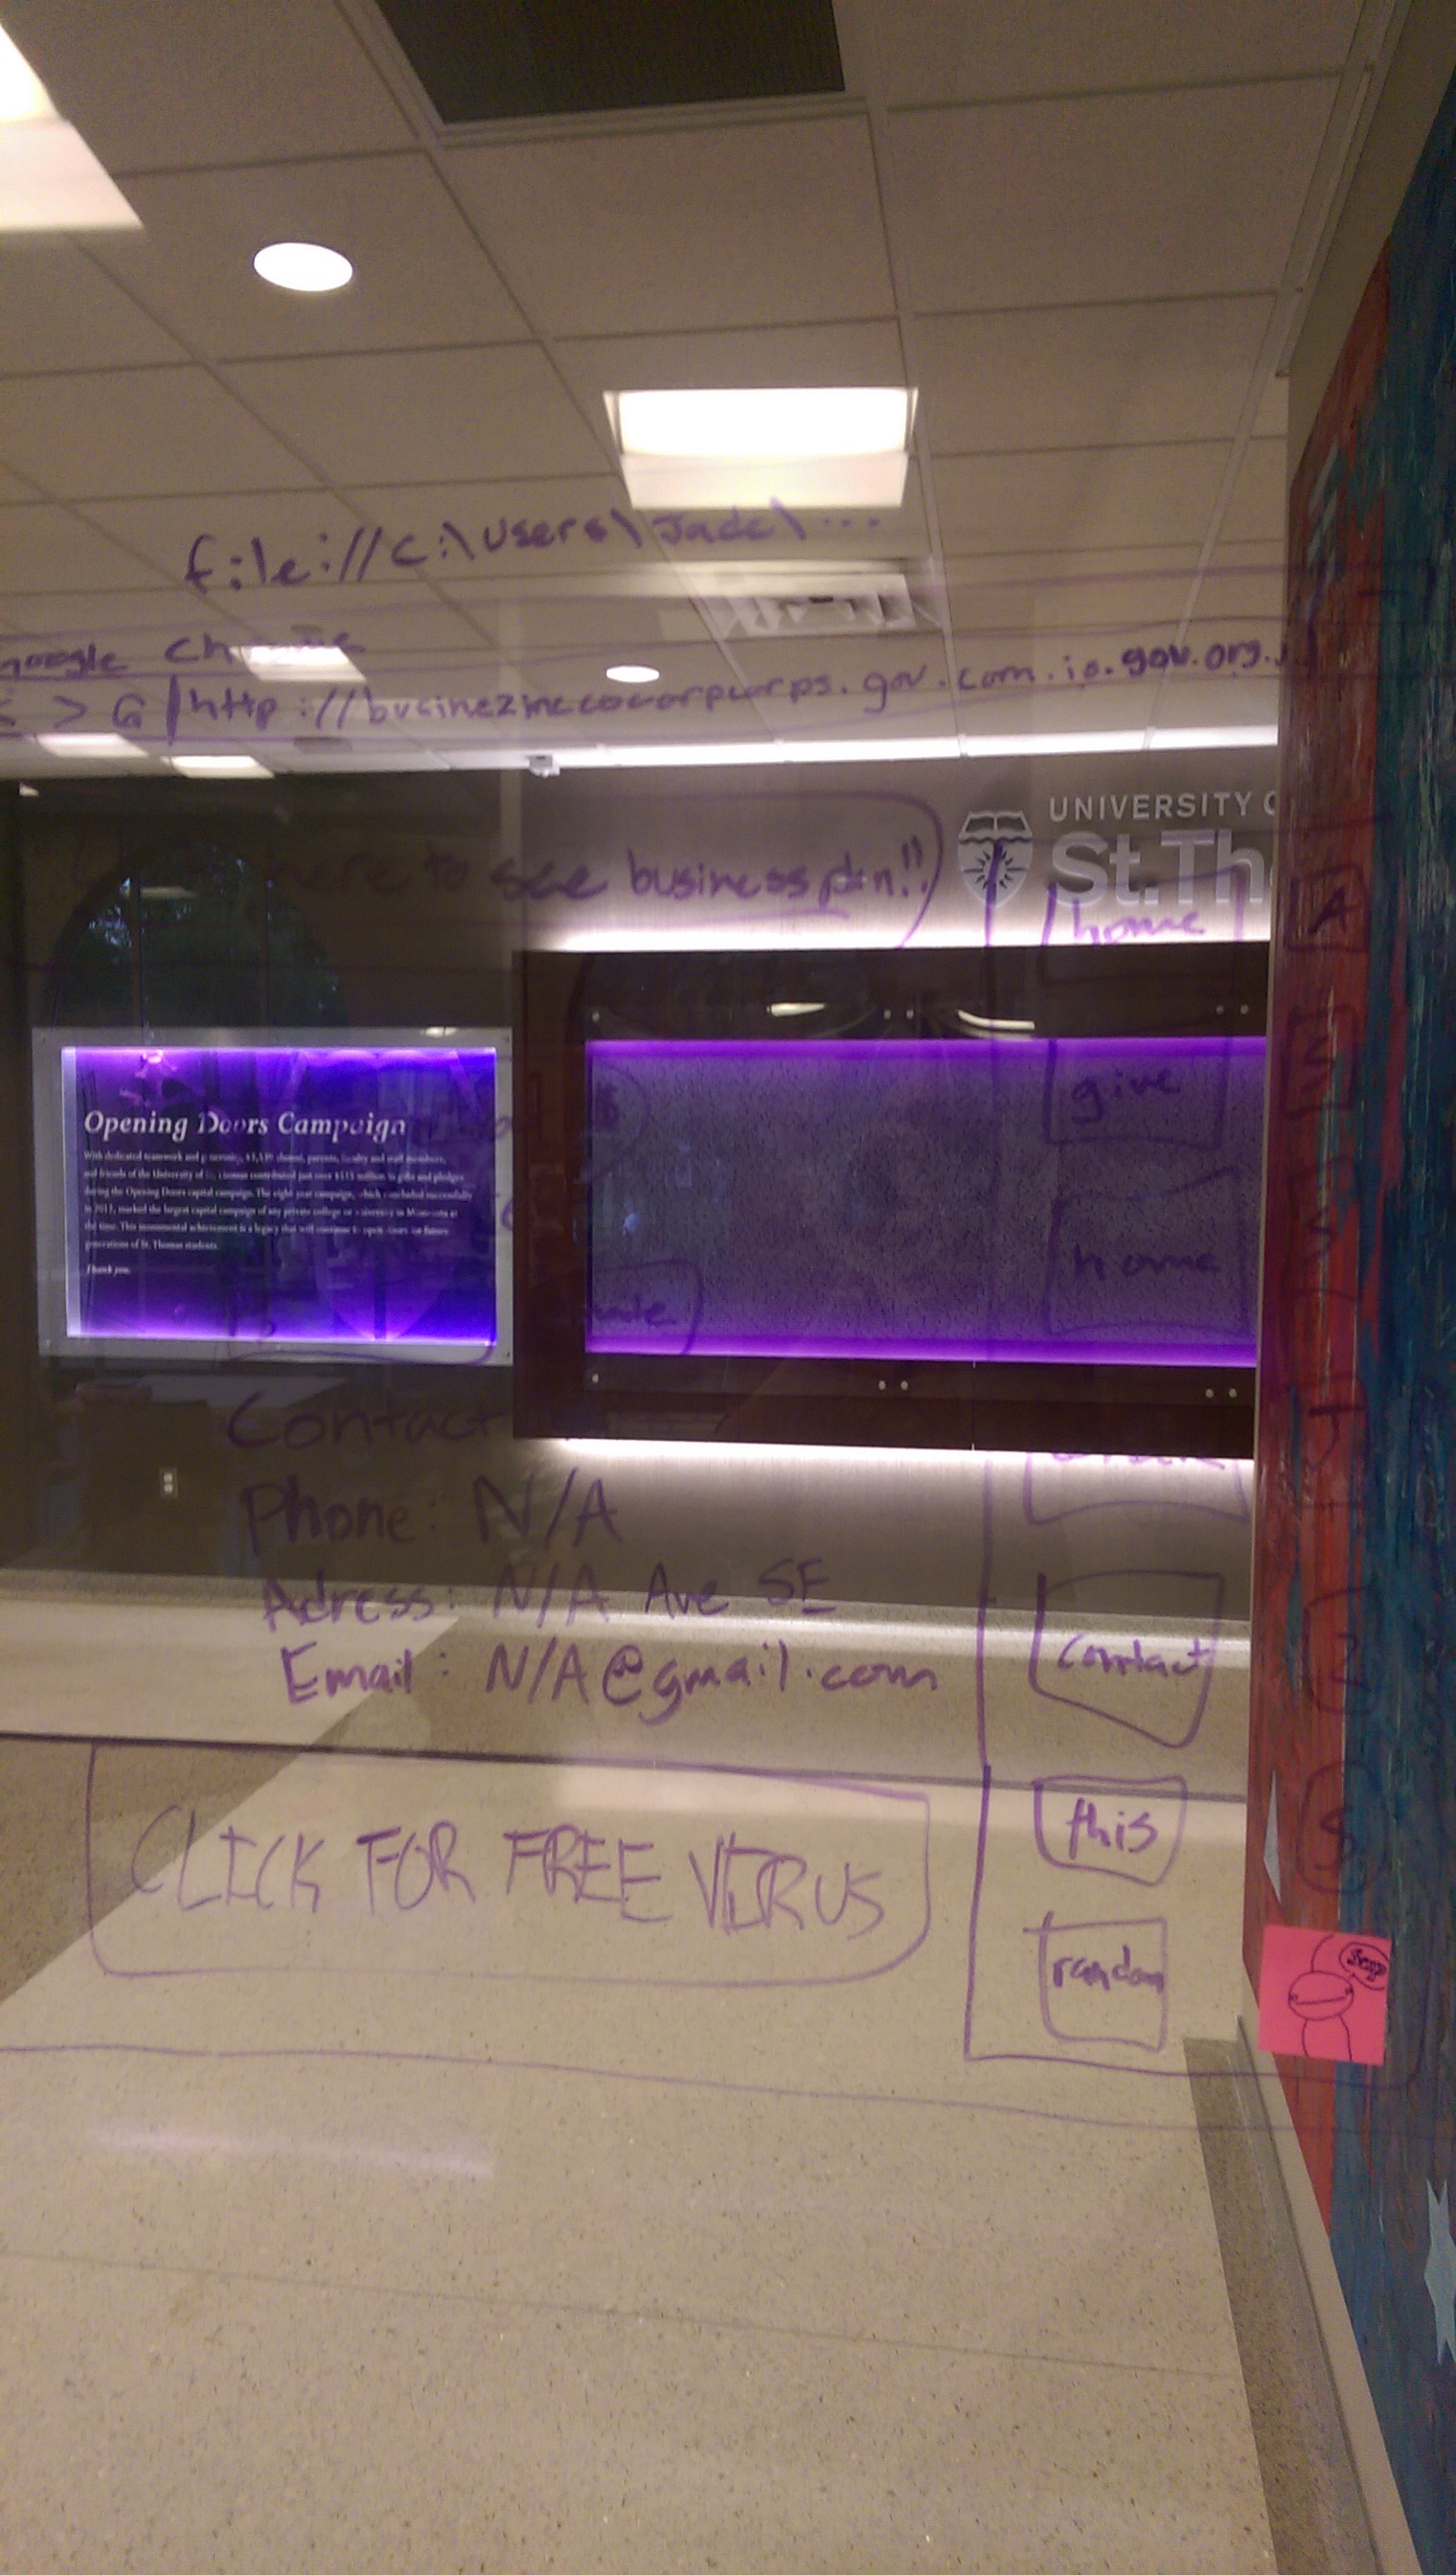 file://c:\Users\Jade\...
google chrome
> G | http://businezinccocorpworps.gov.com.io.gov.org.
here to see business plan!!
UNIVERSITY
St.Th
home
give
home
Opening Doors Campaign
With dedicated teamwork and generosity, 43,539 alumni, parents, faculty and staff members,
and friends of the University of St. Thomas contributed just over $515 million in gifts and pledges
during the Opening Doors capital campaign. The eight year campaign, which concluded successfully
in 2012, marked the largest capital campaign of any private college or university in Minnesota at
the time. This monumental achievement is a legacy that will continue to open doors for future
generations of St. Thomas students.
Thank you.
Contact
Phone: N/A
Adress: N/A Ave SE
Email: N/A@gmail.com
contact
this
random
CLICK FOR FREE VIRUS